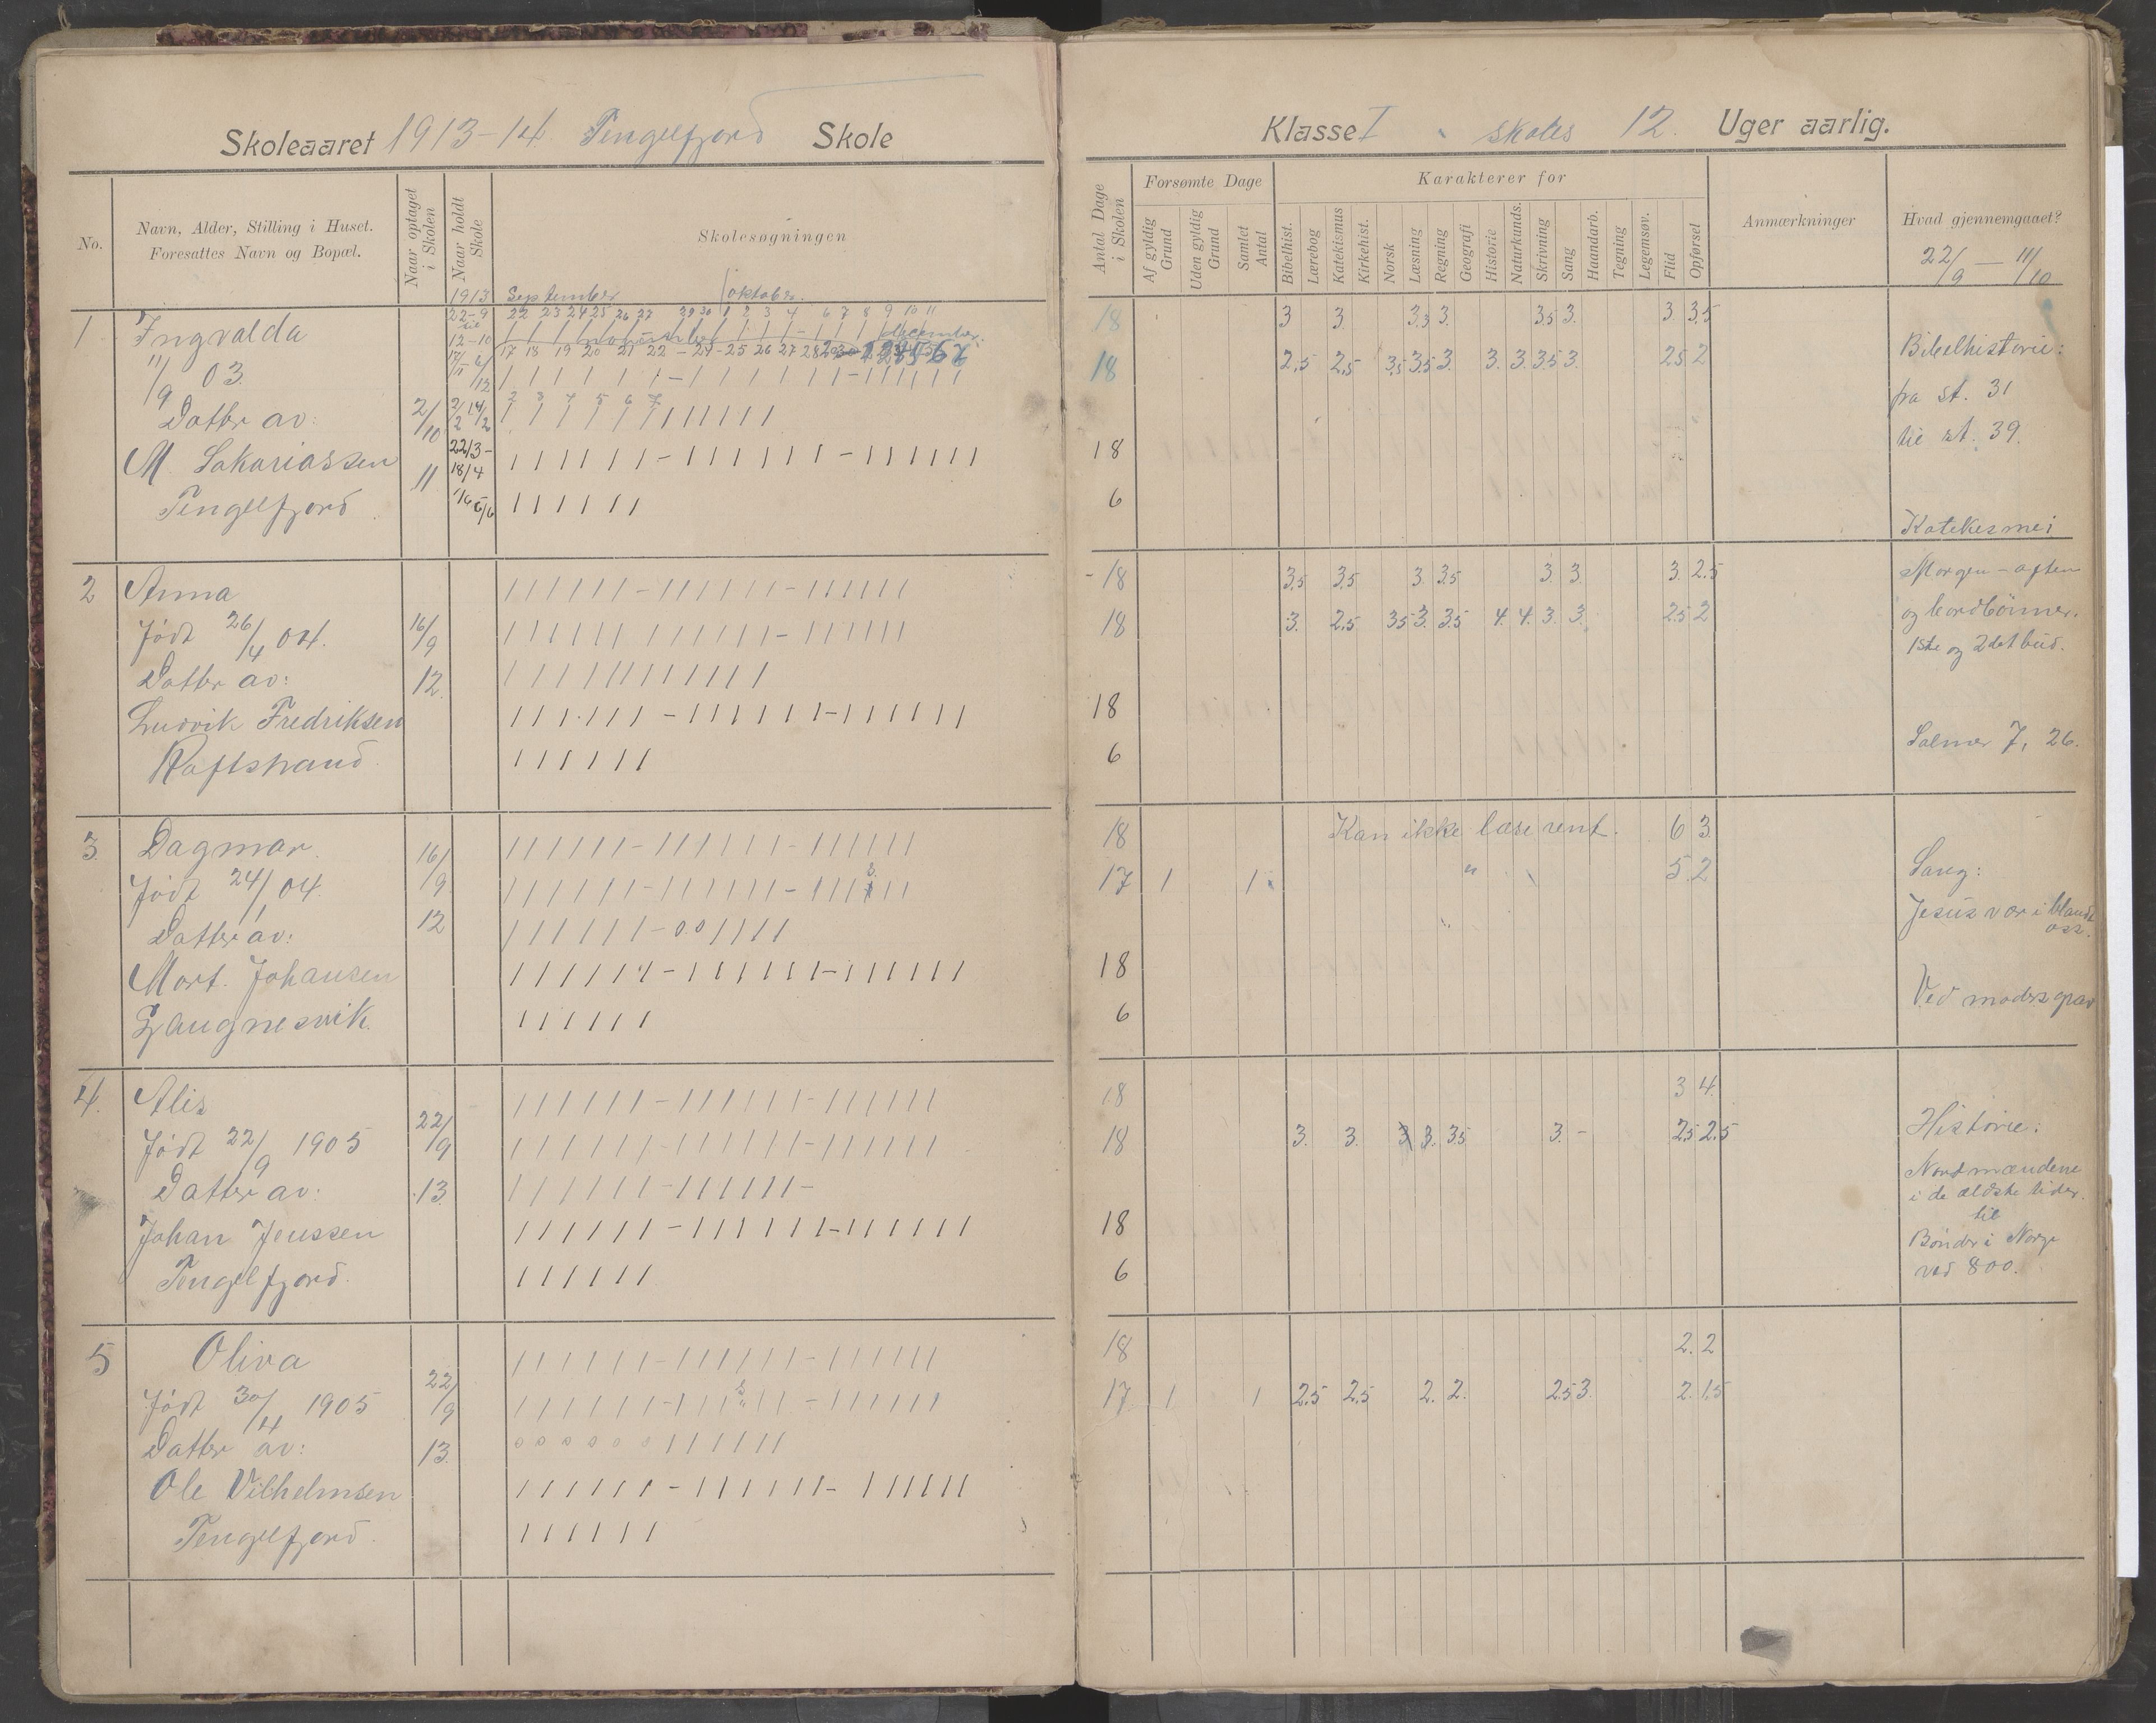 Skoleaaret 1913-14. Tengelfjord Skole
No.
Navn, Alder, Stilling i Huset.
Foresattes Navn og Bopæl.
Naar optaget i Skolen
Naar holdt Skole
Skolesøgningen
1913 September oktobr.
22-9 22 23 24 25 26 27 29 30 1 2 3 4 6 7 8 9 10 11
til
12-10
17 18 19 20 21 22 - 24 - 25 26 27 28
1 Ingvalda
11/9 03.
Datter av: 2/10
M. Sakariassen 11
Tengelfjord
2 3 4 5 6 7
22/3 -
18/4
2 Anna
født 26/4 04. 16/9
Datter av: 12.
Ludvik Fredriksen
Raftstrand
3. Dagmar. 16/9
født 24/1 04.
Datter av: 12
Mort. Johansen
4. Alis
født 22/9 1905 22/9
Datter av: 13.
Johan Jenssen
Tengelfjord.
5 Oliva
født 30/4 1905 22/9
Datter av: 13.
Ole Vilhelmsen
Tengelfjord.
Klasse I skoles 12. Uger aarlig.
Antal Dage i Skolen
Forsømte Dage
Af gyldig Grund
Uden gyldig Grund
Samlet Antal
Karakterer for
Bibelhist.
Lærebog
Katekismus
Kirkehist.
Norsk
Læsning
Regning
Geografi
Historie
Naturkunds.
Skrivning
Sang
Haandarb.
Tegning
Legemsøv.
Flid
Opførsel
Anmærkninger
Hvad gjennemgaaet?
22/9 - 11/10
18 3 3. 3.3 3. 3.5 3. 3. 3.5
18 2.5 2.5 3.5 3.5 3. 3. 3. 3.5 3. 2.5 2
18
6
18 3.5 3.5 3. 3.5 3. 3. 3. 2.5
18 3. 2.5 3.5 3. 3.5 4. 4. 3. 3. 2.5 2
18
6
18 Kan ikke læse rent. 6 3.
17 1 1 " 5. 2
18
6
18 3 4.
18 3. 3. 3. 3.5 3. - 2.5 2.5
18
6
18 2. 2
17 1 1 2.5 2.5 2. 2. 2.5 3. 2. 1.5
Bibelhistorie:
fra st. 31
til st. 39.
Katekesmei
Morgen - aften
og bordbönner.
1ste og 2det bud.
Salmer 7, 26.
Sang:
Jesus vær i blandt
oss.
Ved moders grav
Historie:
Nordmændene
i de ældste tider.
til
Bönder i Norge
ved 800.